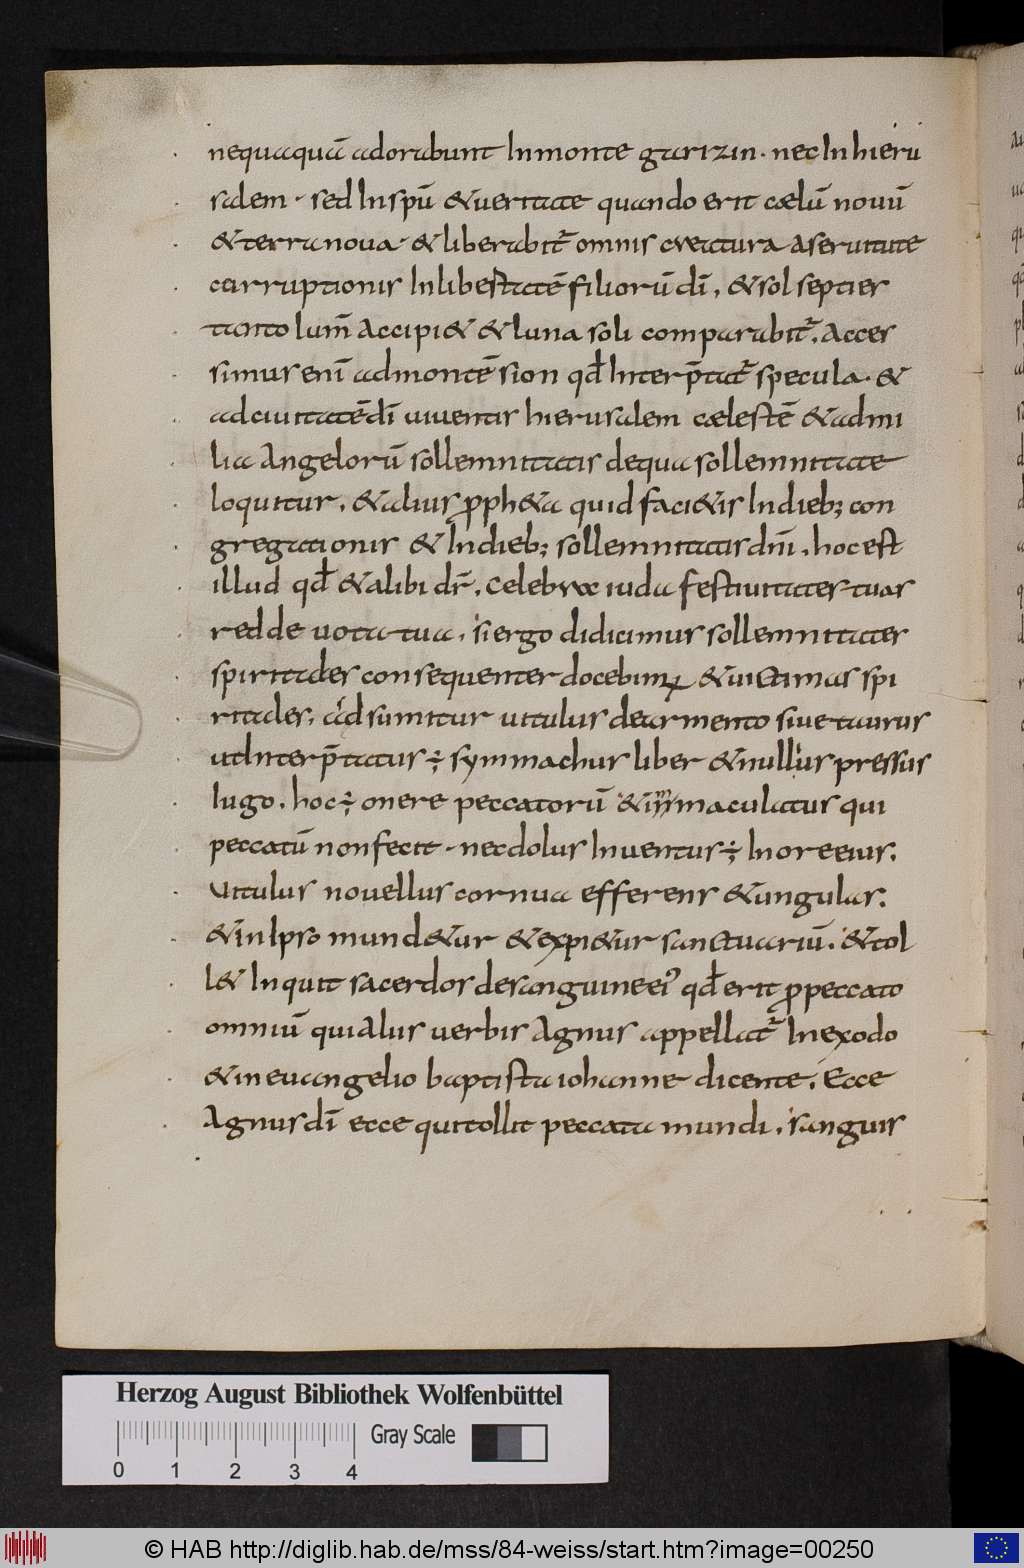 nequaquā adorabunt In monte garizin. nec In hieru
salem. sed In spū & ueritate quando erit cælū nouū
& terra noua. & liberabit᷑ omnis creatura a seruitute
corruptionis In libertatē filiorū dī, & sol septies
tanto lum̄ accipi& & luna soli comparabit᷑. Acces
simus enī ad montē sion qd̄ Interp̄tat᷑ specula. &
ad ciuitatē dī uiuentis hierusalem cælestē & ad mi
lia Angelorū sollemnitatis de qua sollemnitate
loquitur. & alius ꝓph&a quid faci&is In dieb; con
gregationis & In dieb; sollemnitatis dn̄i. hoc est
illud qd̄ & alibi dr̄. Celebrate iuda festiuitates tuas
redde uota tua. si ergo didicimus sollemnitates
spiritales consequenter docebimꝰ & uictimas spi
ritales. adsumitur uitulus de armento siue taurus
ut Interp̄tatus ÷ symmachus liber & nullius pressus
Iugo. hoc ÷ onere peccatorū & immaculatus qui
peccatū non fecit. nec dolus Inuentus ÷ In ore eius.
Uitulus nouellus cornua efferens & ungulas.
& in Ipso mund&ur & expi&ur sanctuariū. & tol
l& Inquit sacerdos de sanguine eiꝰ qd̄ erit ꝓ peccato
omniū qui Alus uerbis Agnus appellat᷑ In exodo
& in euangelio baptista iohanne dicente. Ecce
Agnus dī ecce qui tollit peccata mundi. sanguis
Herzog August Bibliothek Wolfenbüttel
Gray Scale
0 1 2 3 4
© HAB http://diglib.hab.de/mss/84-weiss/start.htm?image=00250